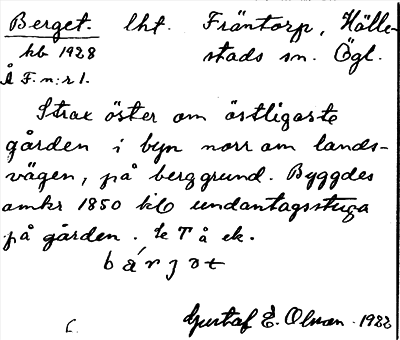 Berget. lht. Fräntorp, Hälle-
kb 1928 stads sn. Ögl.
Å F. n:r 1.
Strax öster om östligaste
gården i byn norr om lands-
vägen, på berggrund. Byggdes
omkr 1850 till undantagsstuga
på gården. Se T å ek.
Gustaf E. Olsson. 1922